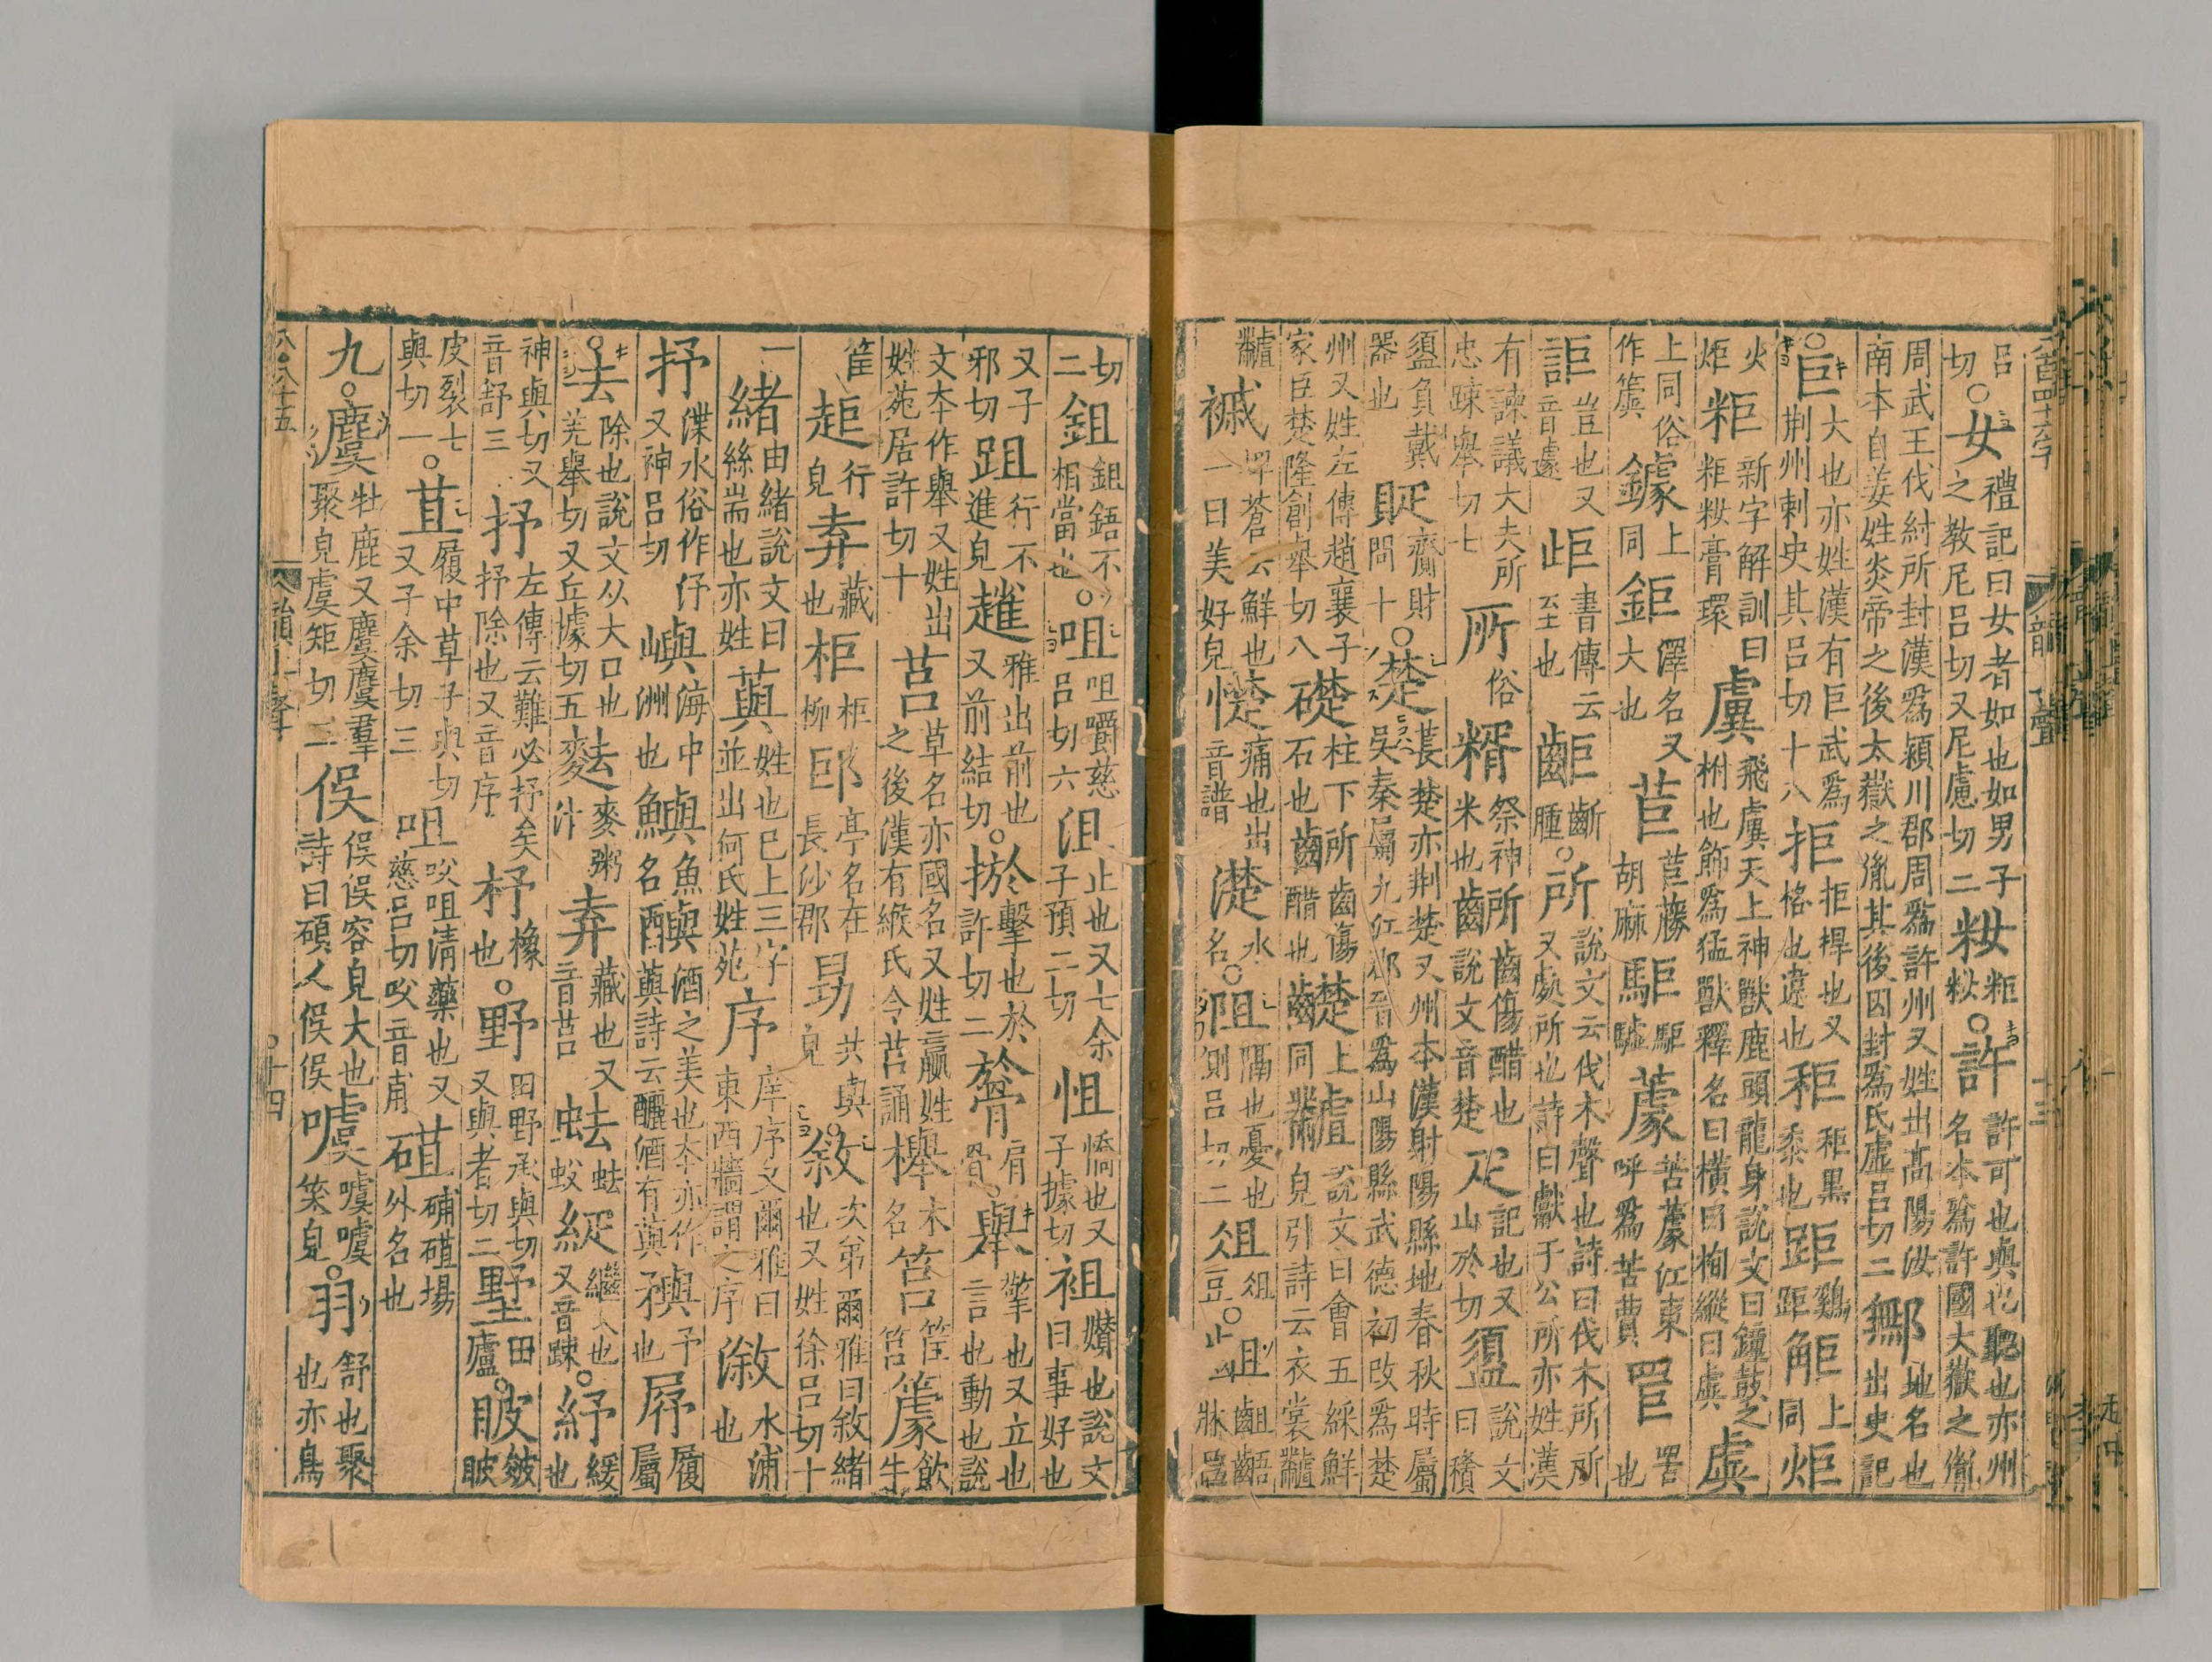 呂切○女禮記曰女者如也如男子之教尼呂切又尼慮切二籹粔籹○許許可也與也聽也亦州名本爲許國大嶽之胤
周武王伐紂所封漢爲潁川郡周爲許州又姓出高陽汝南本自姜姓炎帝之後太嶽之胤其後因封爲氏虛呂切二鄦地名也出史記
○巨大也亦姓漢有巨武爲荆州刺史其呂切十八拒拒捍也又格也違也秬秬黒黍也距鷄距䶙上同炬
火炬粔新字解訓曰粔籹膏環虡飛虡天上神獸鹿頭龍身說文曰鐘鼓之柎也飾爲猛獸釋名曰橫曰栒縱曰虡虡
上同俗作簴鐻上同鉅澤名又大也苣苣藤胡麻駏駏驉蘧苦蘧江東呼爲苦蕒罝罟也
詎豈也又音遽岠書傳云至也齟齗腫○所說文云伐木聲也詩曰伐木所所又處所也詩曰獻于公所亦姓漢
有諫議大夫所忠踈舉切七所俗糈祭神米也齭齒傷醋也說文音楚疋記也又山於切𥂖說文曰積
𥂖負戴器也貶齎財問十○楚萇楚亦荆楚又州本漢射陽縣地春秋時屬吳秦屬九江郡晉爲山陽縣武德初改爲楚
州又姓左傳趙襄子家臣楚隆創舉切八礎柱下石也齭所齒傷醋也齼上同䖏說文曰會五綵鮮皃引詩云衣裳䖏
䖏䙘埤蒼云鮮也一曰美好皃憷痛也出音譜濋水名○阻隔也憂也側呂切二俎俎豆○齟齟齬牀呂
切二鉏鉏鋙不相當也○咀咀嚼慈呂切六沮止也又七余子預二切怚憍也又子據切袓𡣪也說文曰事好也
又子邪切跙行不進皃䞰雅出前也又前結切○㧗擊也於許切二𦜕肩骨○舉擎也又立也言也動也說
文夲作舉又姓出姓苑居許切十莒草名亦國名又姓嬴姓之後漢有緱氏令莒誦櫸木名筥筐筥𥴧飮牛
筐䞤行皃弆藏也柜柜柳䣓亭名在長沙郡㔘共與皃○敘次弟爾雅曰敘緒也又姓徐呂切十
一緒由緒說文曰絲耑也亦姓藇姓也巳上三字並出何氏姓苑序庠序又爾雅曰東西牆謂之序漵水浦也
抒渫水俗作㐨又神呂切嶼海中洲也鱮魚名䣱酒之美也夲亦作藇詩云釃酒有藇㺞予也㞕履屬
○去除也說文从大口也羌舉切又丘據切五麮麥粥汁弆藏也又音莒𧉧𧉧蚥𦀘繼大也又音踈○紓緩也
神與切又音舒三抒左傳云難必抒矣抒除也又音序杼橡也○野田野承與切又與者切二墅田廬○䟽皴皮
皮裂七與切一○苴履中草子與切又子余切三咀㕮咀淸藥也又慈呂切㕮音甫䃊硳䃊場外名也
九○麌牡鹿又麌麌羣聚皃虞矩切二俁俁俁容皃大也詩曰碩人俁俁噳噳噳笑皃○羽舒也聚也亦鳥
十四